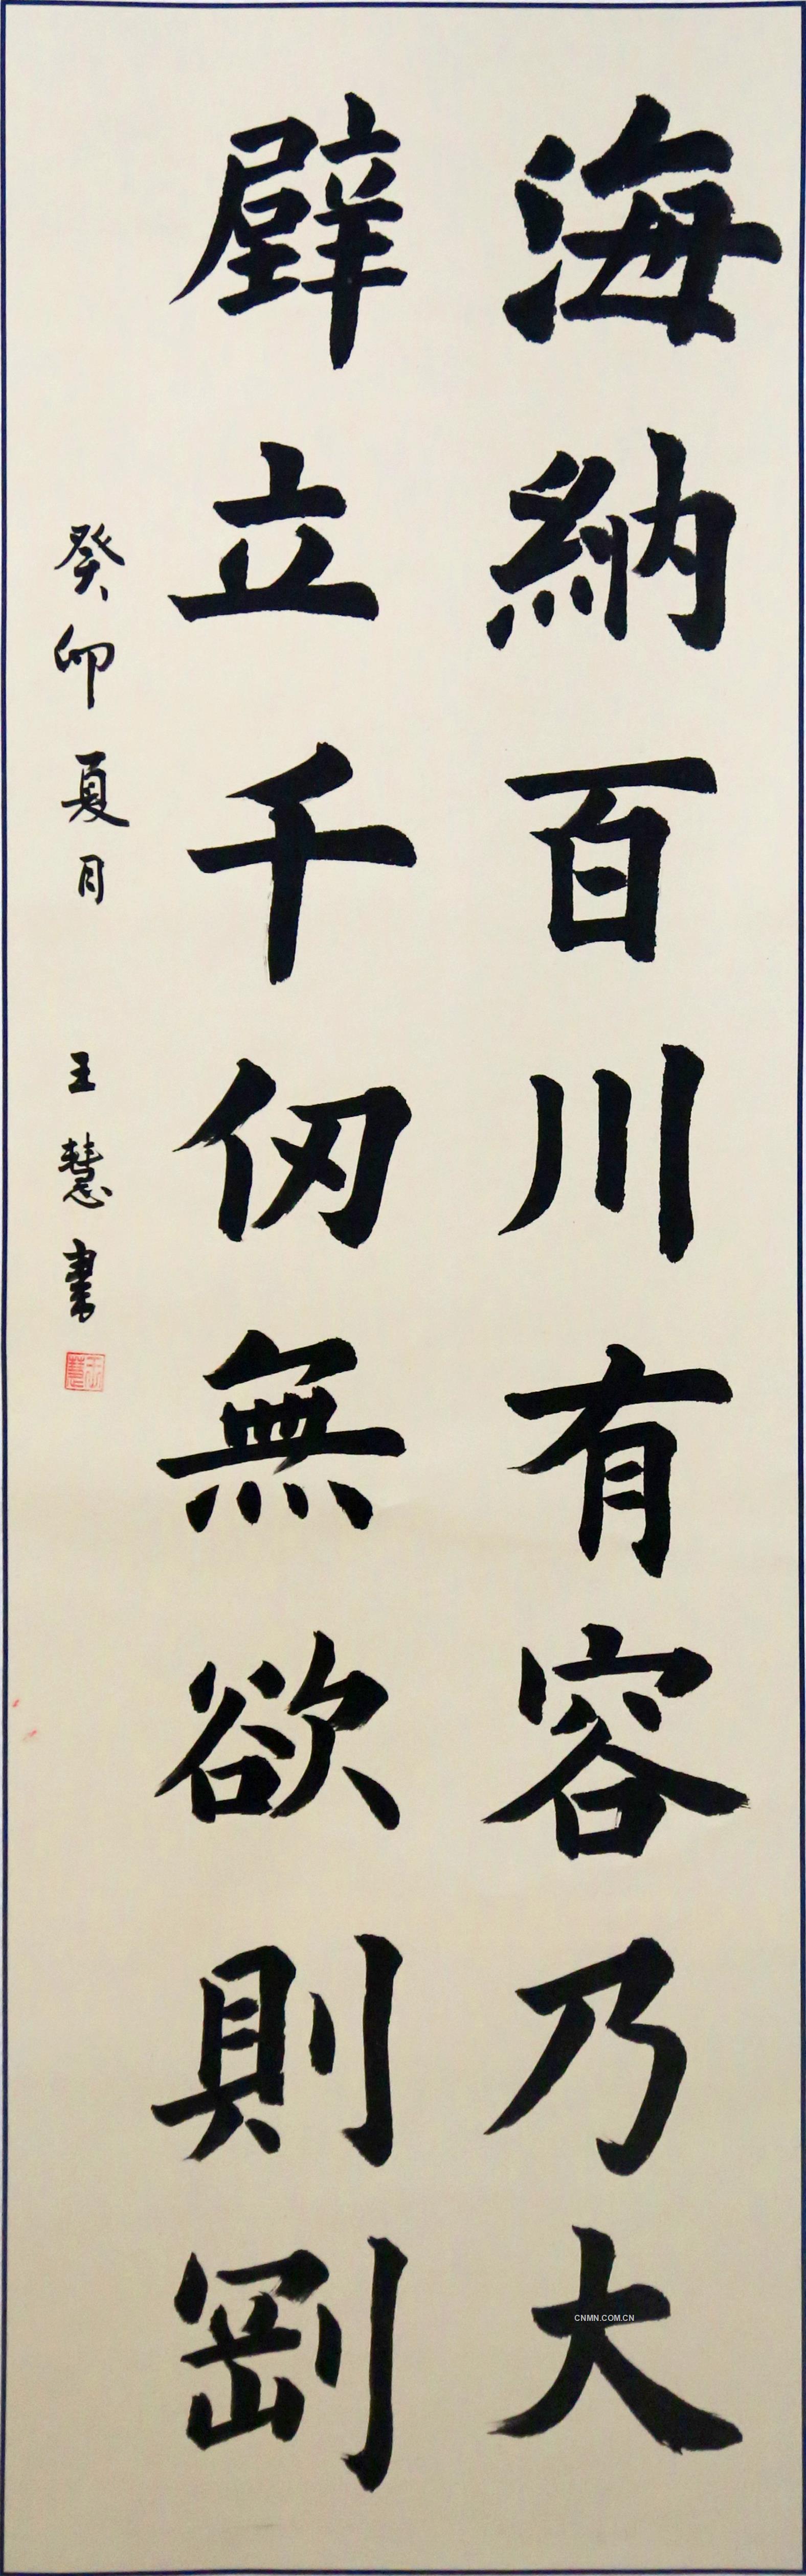 海納百川有容乃大
壁立千仞無欲則剛
癸卯夏月 王慧書
CNMN.COM.CN